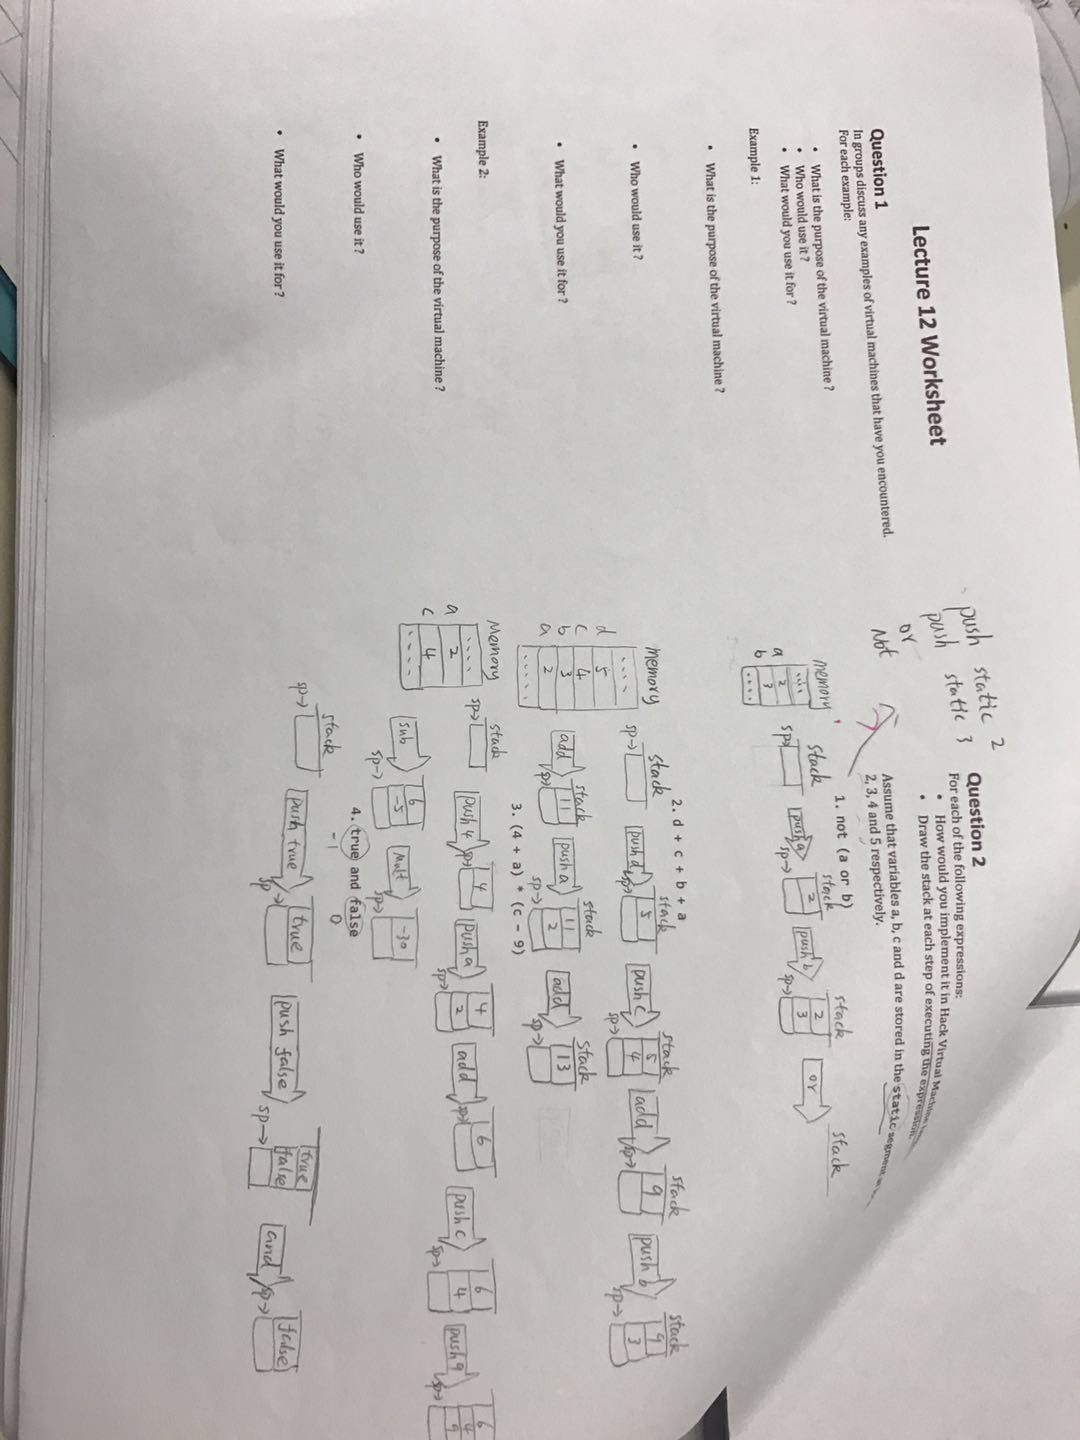 Lecture 12 Worksheet
Question 1
In groups discuss any examples of virtual machines that have you encountered.
For each example:
• What is the purpose of the virtual machine ?
• Who would use it ?
• What would you use it for ?
Example 1:
• What is the purpose of the virtual machine ?
• Who would use it ?
• What would you use it for ?
Example 2:
• What is the purpose of the virtual machine ?
• Who would use it ?
• What would you use it for ?
push static 2
push static 3
or
Not
Question 2
For each of the following expressions:
• How would you implement it in Hack Virtual Machine
• Draw the stack at each step of executing the expression.
Assume that variables a, b, c and d are stored in the static segment
2, 3, 4 and 5 respectively.
1. not (a or b)
memory stack stack stack stack
.... 
a 2
b 3
....
sp→ push a sp→ 2 push b sp→ 2 3 or
2. d + c + b + a
memory stack stack stack stack stack
....
d 5
c 4
b 3
a 2
.....
sp→ push d sp→ 5 push c sp→ 5 4 add sp→ 9 push b sp→ 9 3
stack stack stack
add sp→ 11 push a sp→ 11 2 add sp→ 13
3. (4 + a) * (c - 9)
Memory stack
....
a 2
c 4
.....
sp→ push 4 sp→ 4 push a sp→ 4 2 add sp→ 6 push c sp→ 6 4 push 9 sp→ 6 4 9
sub sp→ 6 -5 Mult sp→ -30
4. true and false
-1 0
stack
sp→ push true sp→ true push false sp→ true false and sp→ false